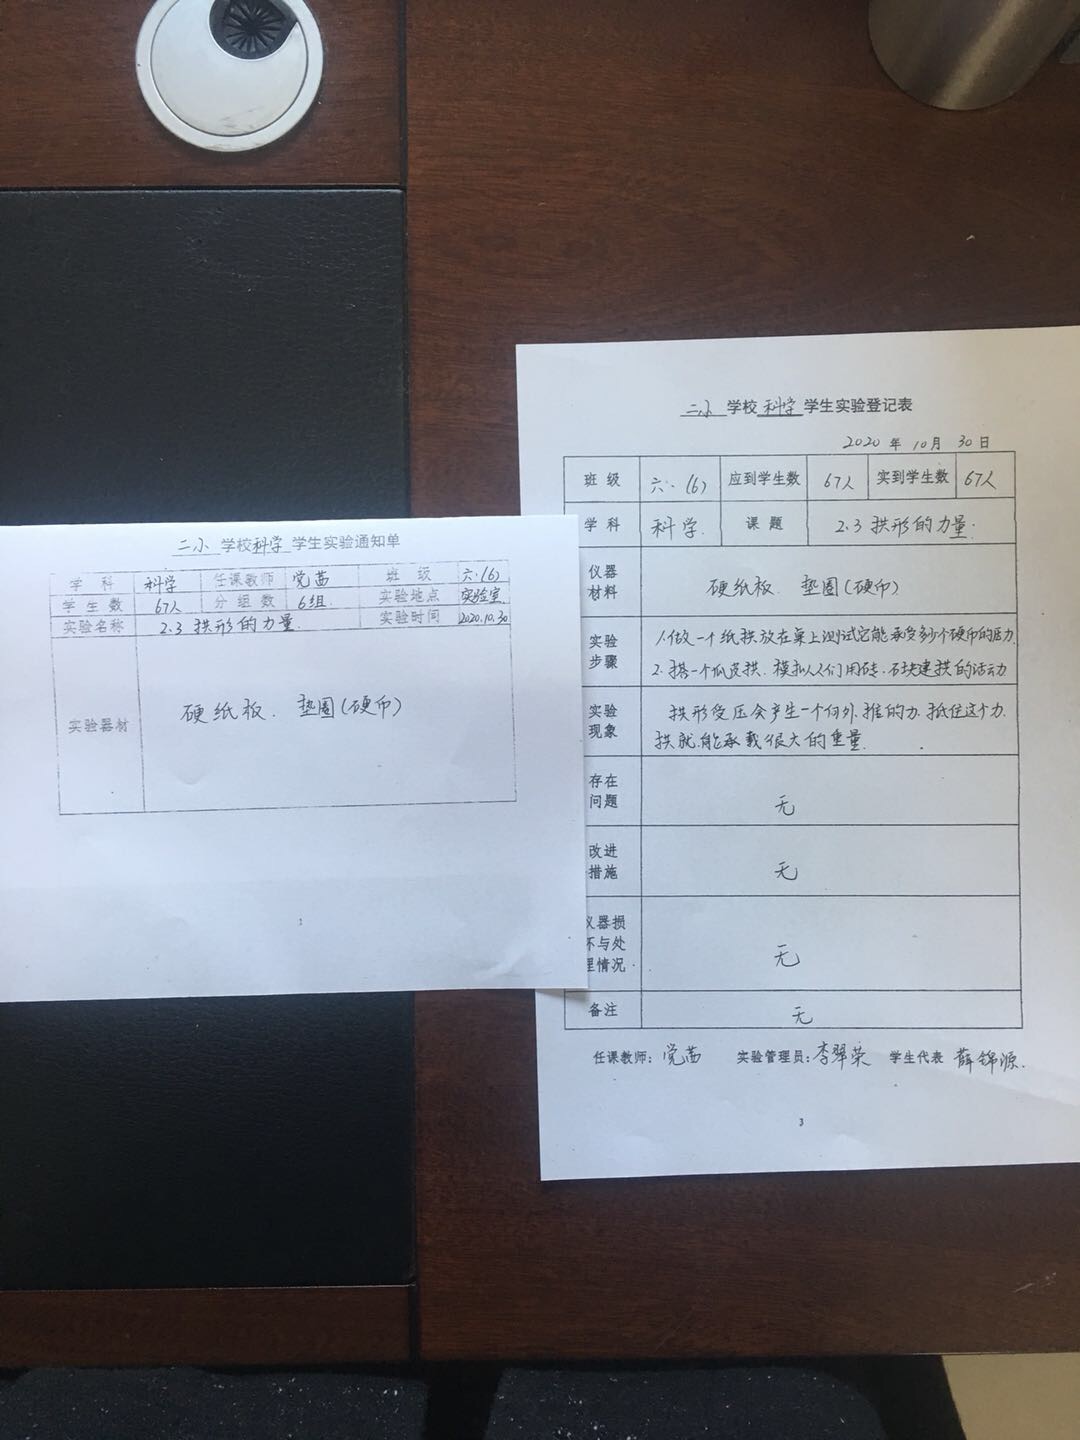 二小 学校 科学 学生实验通知单
学科 科学 任课教师 党茜 班级 六.(6)
学生数 67人 分组数 6组. 实验地点 实验室
实验名称 2.3 拱形的力量. 实验时间 2020.10.30
实验器材 硬纸板. 垫圈(硬币)
1
二小 学校 科学 学生实验登记表
2020 年 10月 30日
班级 六.(6) 应到学生数 67人 实到学生数 67人
学科 科学. 课题 2.3 拱形的力量.
仪器
材料
硬纸板. 垫圈(硬币)
实验
步骤
1.做一个纸拱放在桌上测试它能承受多少个硬币的压力.
2.搭一个瓜皮拱.模拟人们用砖.石块建拱的活动
实验
现象
拱形受压会产生一个向外.推的力.抵住这个力.
拱就.能承载很大的重量.
存在
问题
无
改进
措施
无
仪器损
坏与处
理情况
无
备注 无
任课教师: 党茜 实验管理员: 李翠荣 学生代表 薛锦源.
3